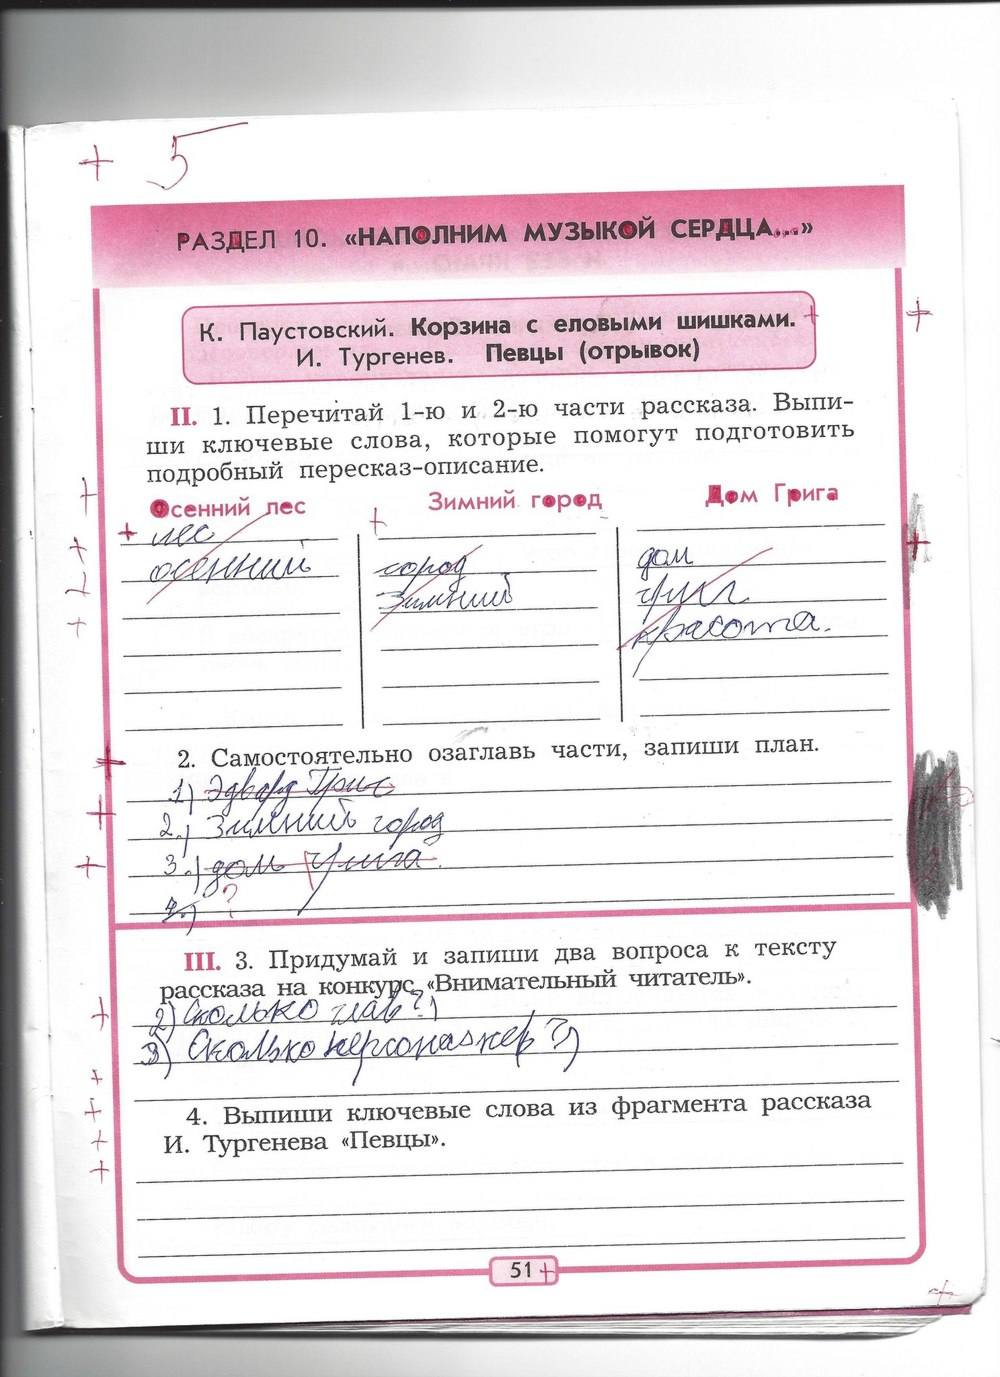 + 5
РАЗДЕЛ 10. «НАПОЛНИМ МУЗЫКОЙ СЕРДЦА...»
К. Паустовский. Корзина с еловыми шишками.
И. Тургенев. Певцы (отрывок)
II. 1. Перечитай 1-ю и 2-ю части рассказа. Выпи-
ши ключевые слова, которые помогут подготовить
подробный пересказ-описание.
Осенний лес Зимний город Дом Грига
лес
осенний
город
Зимний
дом
григ
красота.
2. Самостоятельно озаглавь части, запиши план.
1) Эдвард Григ
2.) Зимний город
3.) дом грига
4.) ?
III. 3. Придумай и запиши два вопроса к тексту
рассказа на конкурс «Внимательный читатель».
2) Сколько глав?)
3) Сколько персонажей?)
4. Выпиши ключевые слова из фрагмента рассказа
И. Тургенева «Певцы».
51